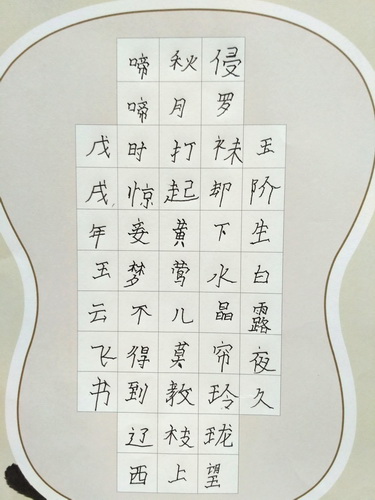 玉阶生白露夜久
侵罗袜却下水晶帘玲珑望
秋月打起黄莺儿莫教枝上
啼啼时惊妾梦不得到辽西
戊戌年玉云飞书